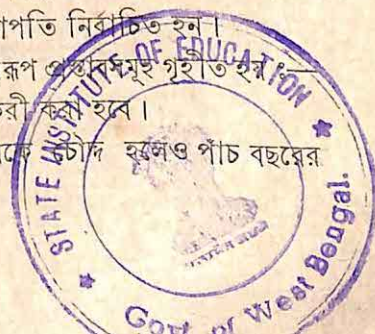 পতি নির্বাচিত হন।
রূপ প্রস্তাবসমূহ গৃহীত হয়—
করা হবে।
চৌদ্দ হলেও পাঁচ বছরের
STATE INSTITUTE OF EDUCATION
Govt. of West Bengal.